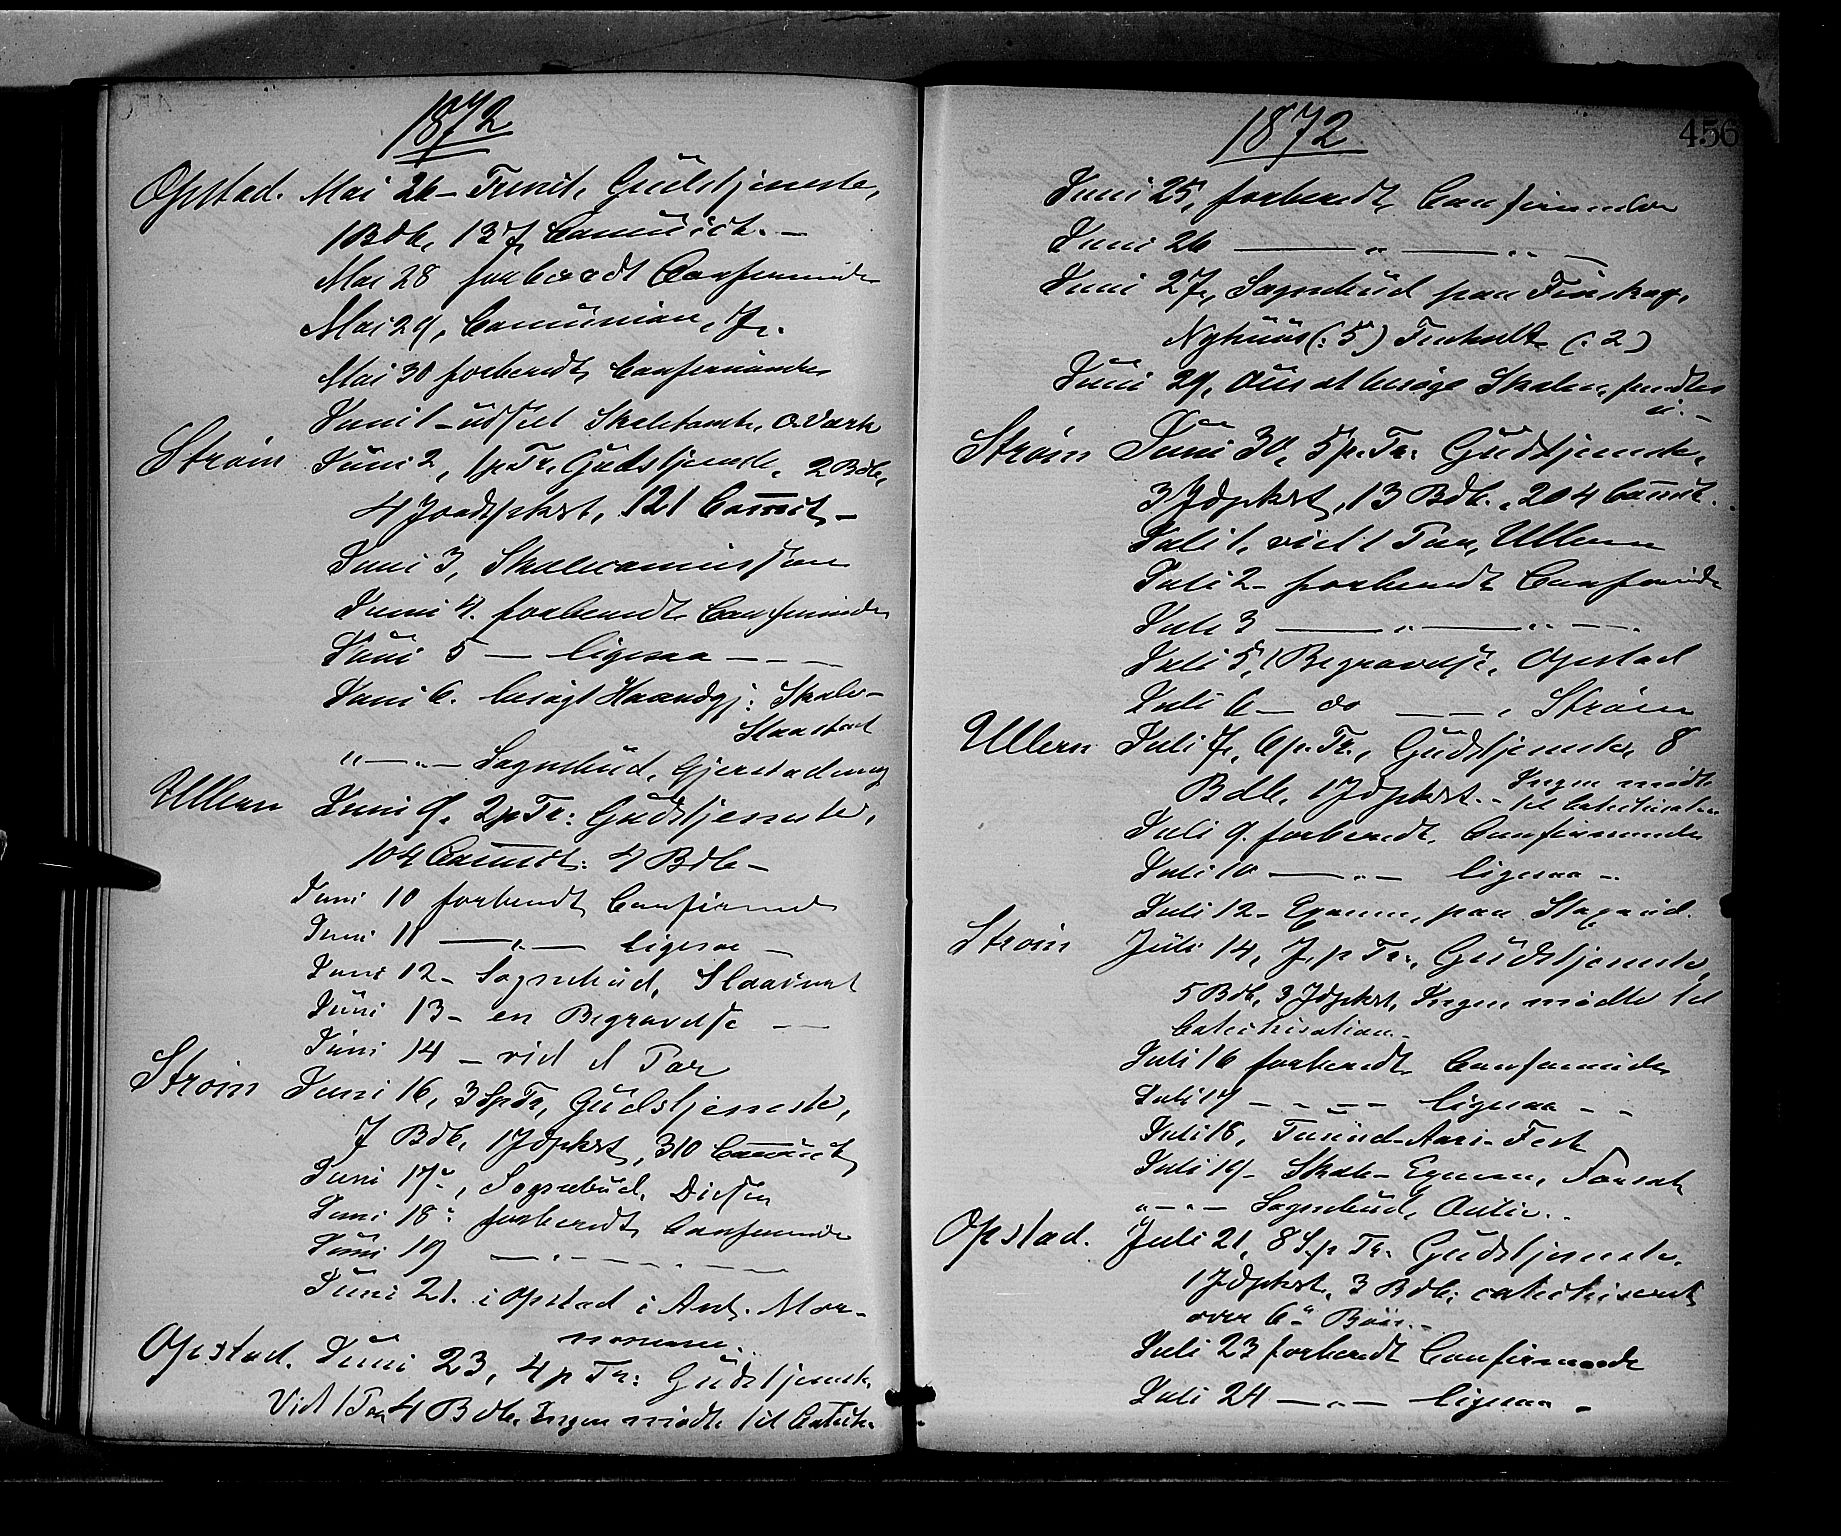 1872
Opstad. Mai 26 - Trinit. Gudstjeneste,
1 Bdb, 137 Communict. -
Mai 28 forberedt Confirmander
Mai 29, Communion, 7.
Mai 30 forberedt Confirmander
Juni 1 - Skoletomt, Odvark
Strøm Juni 2, 1 p. Tr. Gudstjeneste, 2 Bdb,
4 Jordspkst, 121 Commct -
Juni 3, Skolecommission
Juni 4. forberedt Confirmander
Juni 5 — ligesaa — — —
Juni 6. besøgt Haandgj: Skole -
Slaastad
" — " — Sognebud, Gjerstadeng
Ullern Juni 9, 2 p Tr: Gudstjeneste,
104 Communict: 4 Bdb -
Juni 10 forberedt Confirmander
Juni 11 — " — ligesaa —
Juni 12 - Sognebud,
Juni 13 - en Begravelse — —
Juni 14 - viet et Par
Strøm Juni 16, 3 S p Tr, Gudstjeneste,
7 Bdb, 1 Jdpkst, 310 Communict
Juni 17, Sognebud, Disen
Juni 18: forberedt Confirmander
Juni 19 — " — " —
Juni 21. i Opstad i Anl. Mor-
monerne..
Opstad. Juni 23, 4 p Tr: Gudstjeneste
Viet 1 Par 4 Bdb. Ingen mødte til Catech.
1872
456
Juni 25, forberedt Confirmander
Juni 26 — " — " —
Juni 27, Sognebud paa Finskog,
Nyhuus (: 5) (: 2)
Juni 29, at besøge Skolen, fandtes
ei. -
Strøm Juni 30, 5 p. Tr: Gudstjeneste,
3 Jdpkst, 13 Bdb., 204 Commct.
Juli 1, viet 1 Par, Ullern
Juli 2 - forberedt Confirmander
Juli 3 — " — " —
Juli 5, 1 Begravelse, Opstad
Juli 6 - do — — , Strøm
Ullern Juli 7, 6 p. Tr., Gudstjeneste, 8
Bdb, 1 Jdpkst. - Ingen mødte
til Catechisation
Juli 9. forberedt, Confirmander
Juli 10 — " — ligesaa -
Juli 12 - Examen, paa
Strøm Juli 14, 7 p Tr., Gudstjeneste,
5 Bdb, 3 Jdpkst, Ingen mødte til
Catechisation -
Juli 16 forberedt Confirmander
Juli 17 — " — ligesaa - -
Juli 18, Tusind-Aars-Fest
Juli 19 - Skole-Examen,
" — " — Sognebud,
Opstad. Juli 21, 8 S. p Tr. Gudstjeneste.
1 Jdpkst, 3 Bdb; catechiseret
over 6" Bøn. -
Juli 23 forberedt Confirmande
Juli 24 — " — ligesaa -